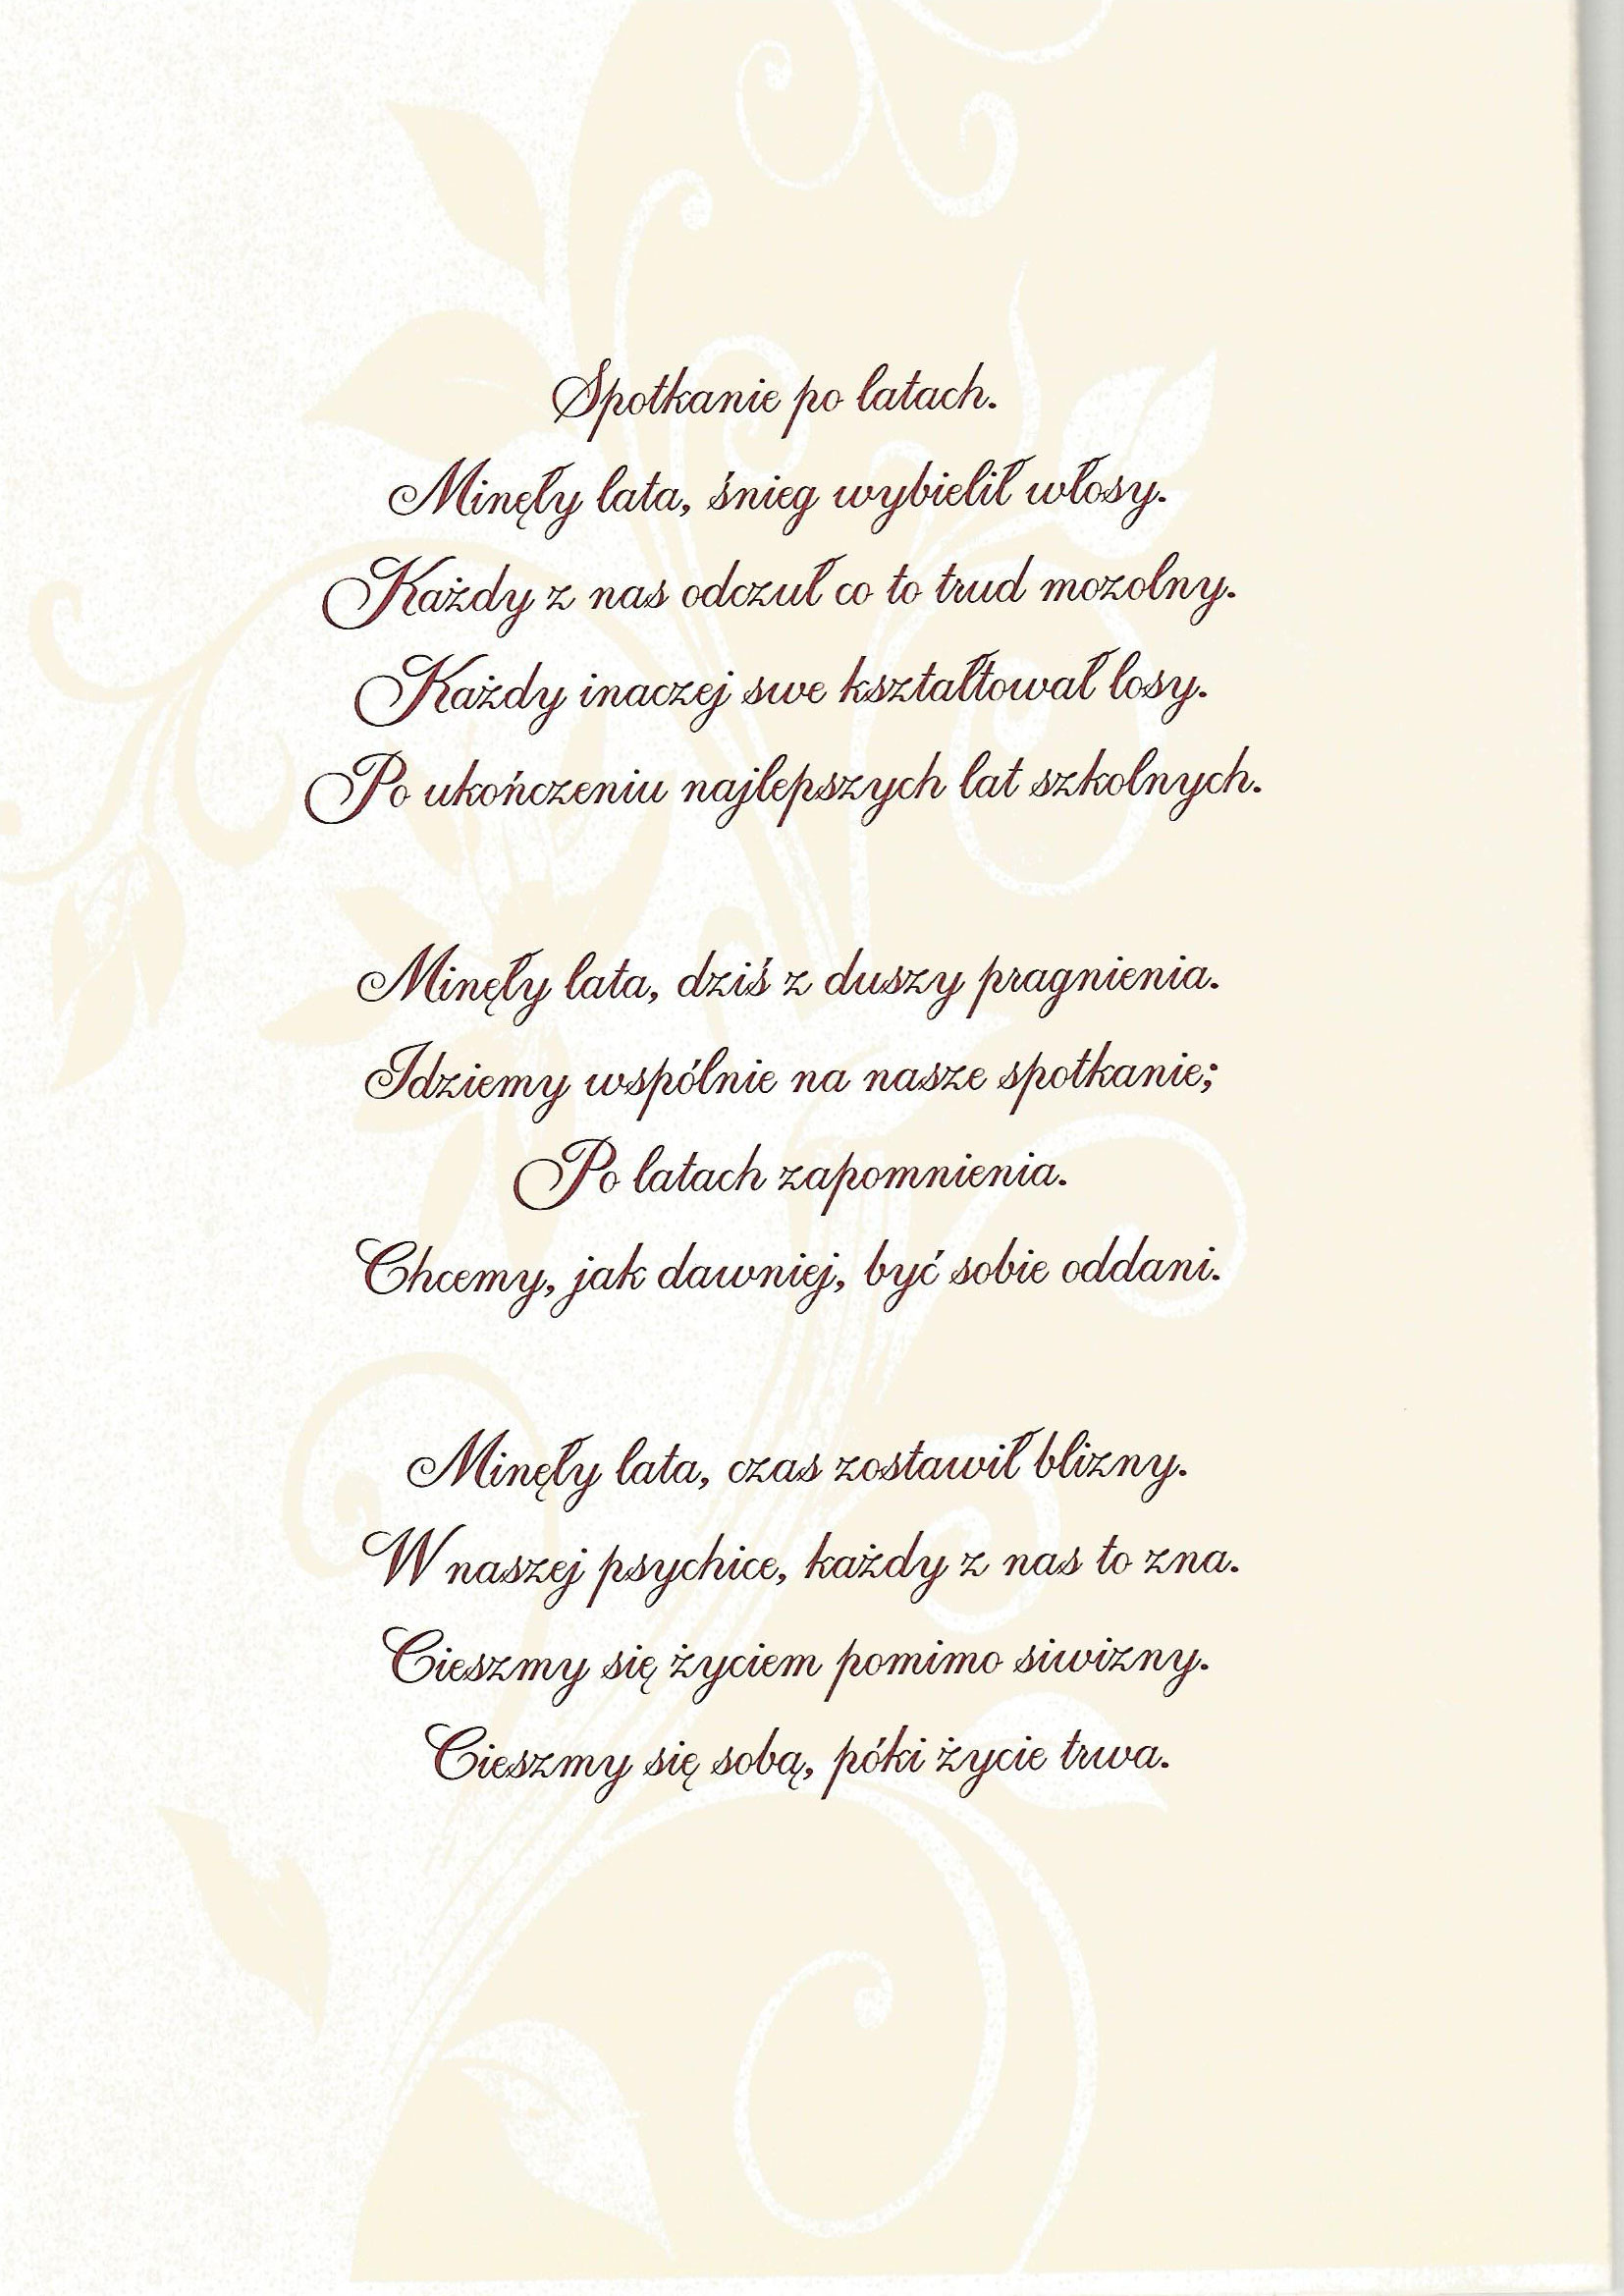 Spotkanie po latach.
Minęły lata, śnieg wybielił włosy.
Każdy z nas odczuł co to trud mozolny.
Każdy inaczej swe kształtował losy.
Po ukończeniu najlepszych lat szkolnych.
Minęły lata, dziś z duszy pragnienia.
Idziemy wspólnie na nasze spotkanie;
Po latach zapomnienia.
Chcemy, jak dawniej, być sobie oddani.
Minęły lata, czas zostawił blizny.
W naszej psychice, każdy z nas to zna.
Cieszmy się życiem pomimo siwizny.
Cieszmy się sobą, póki życie trwa.